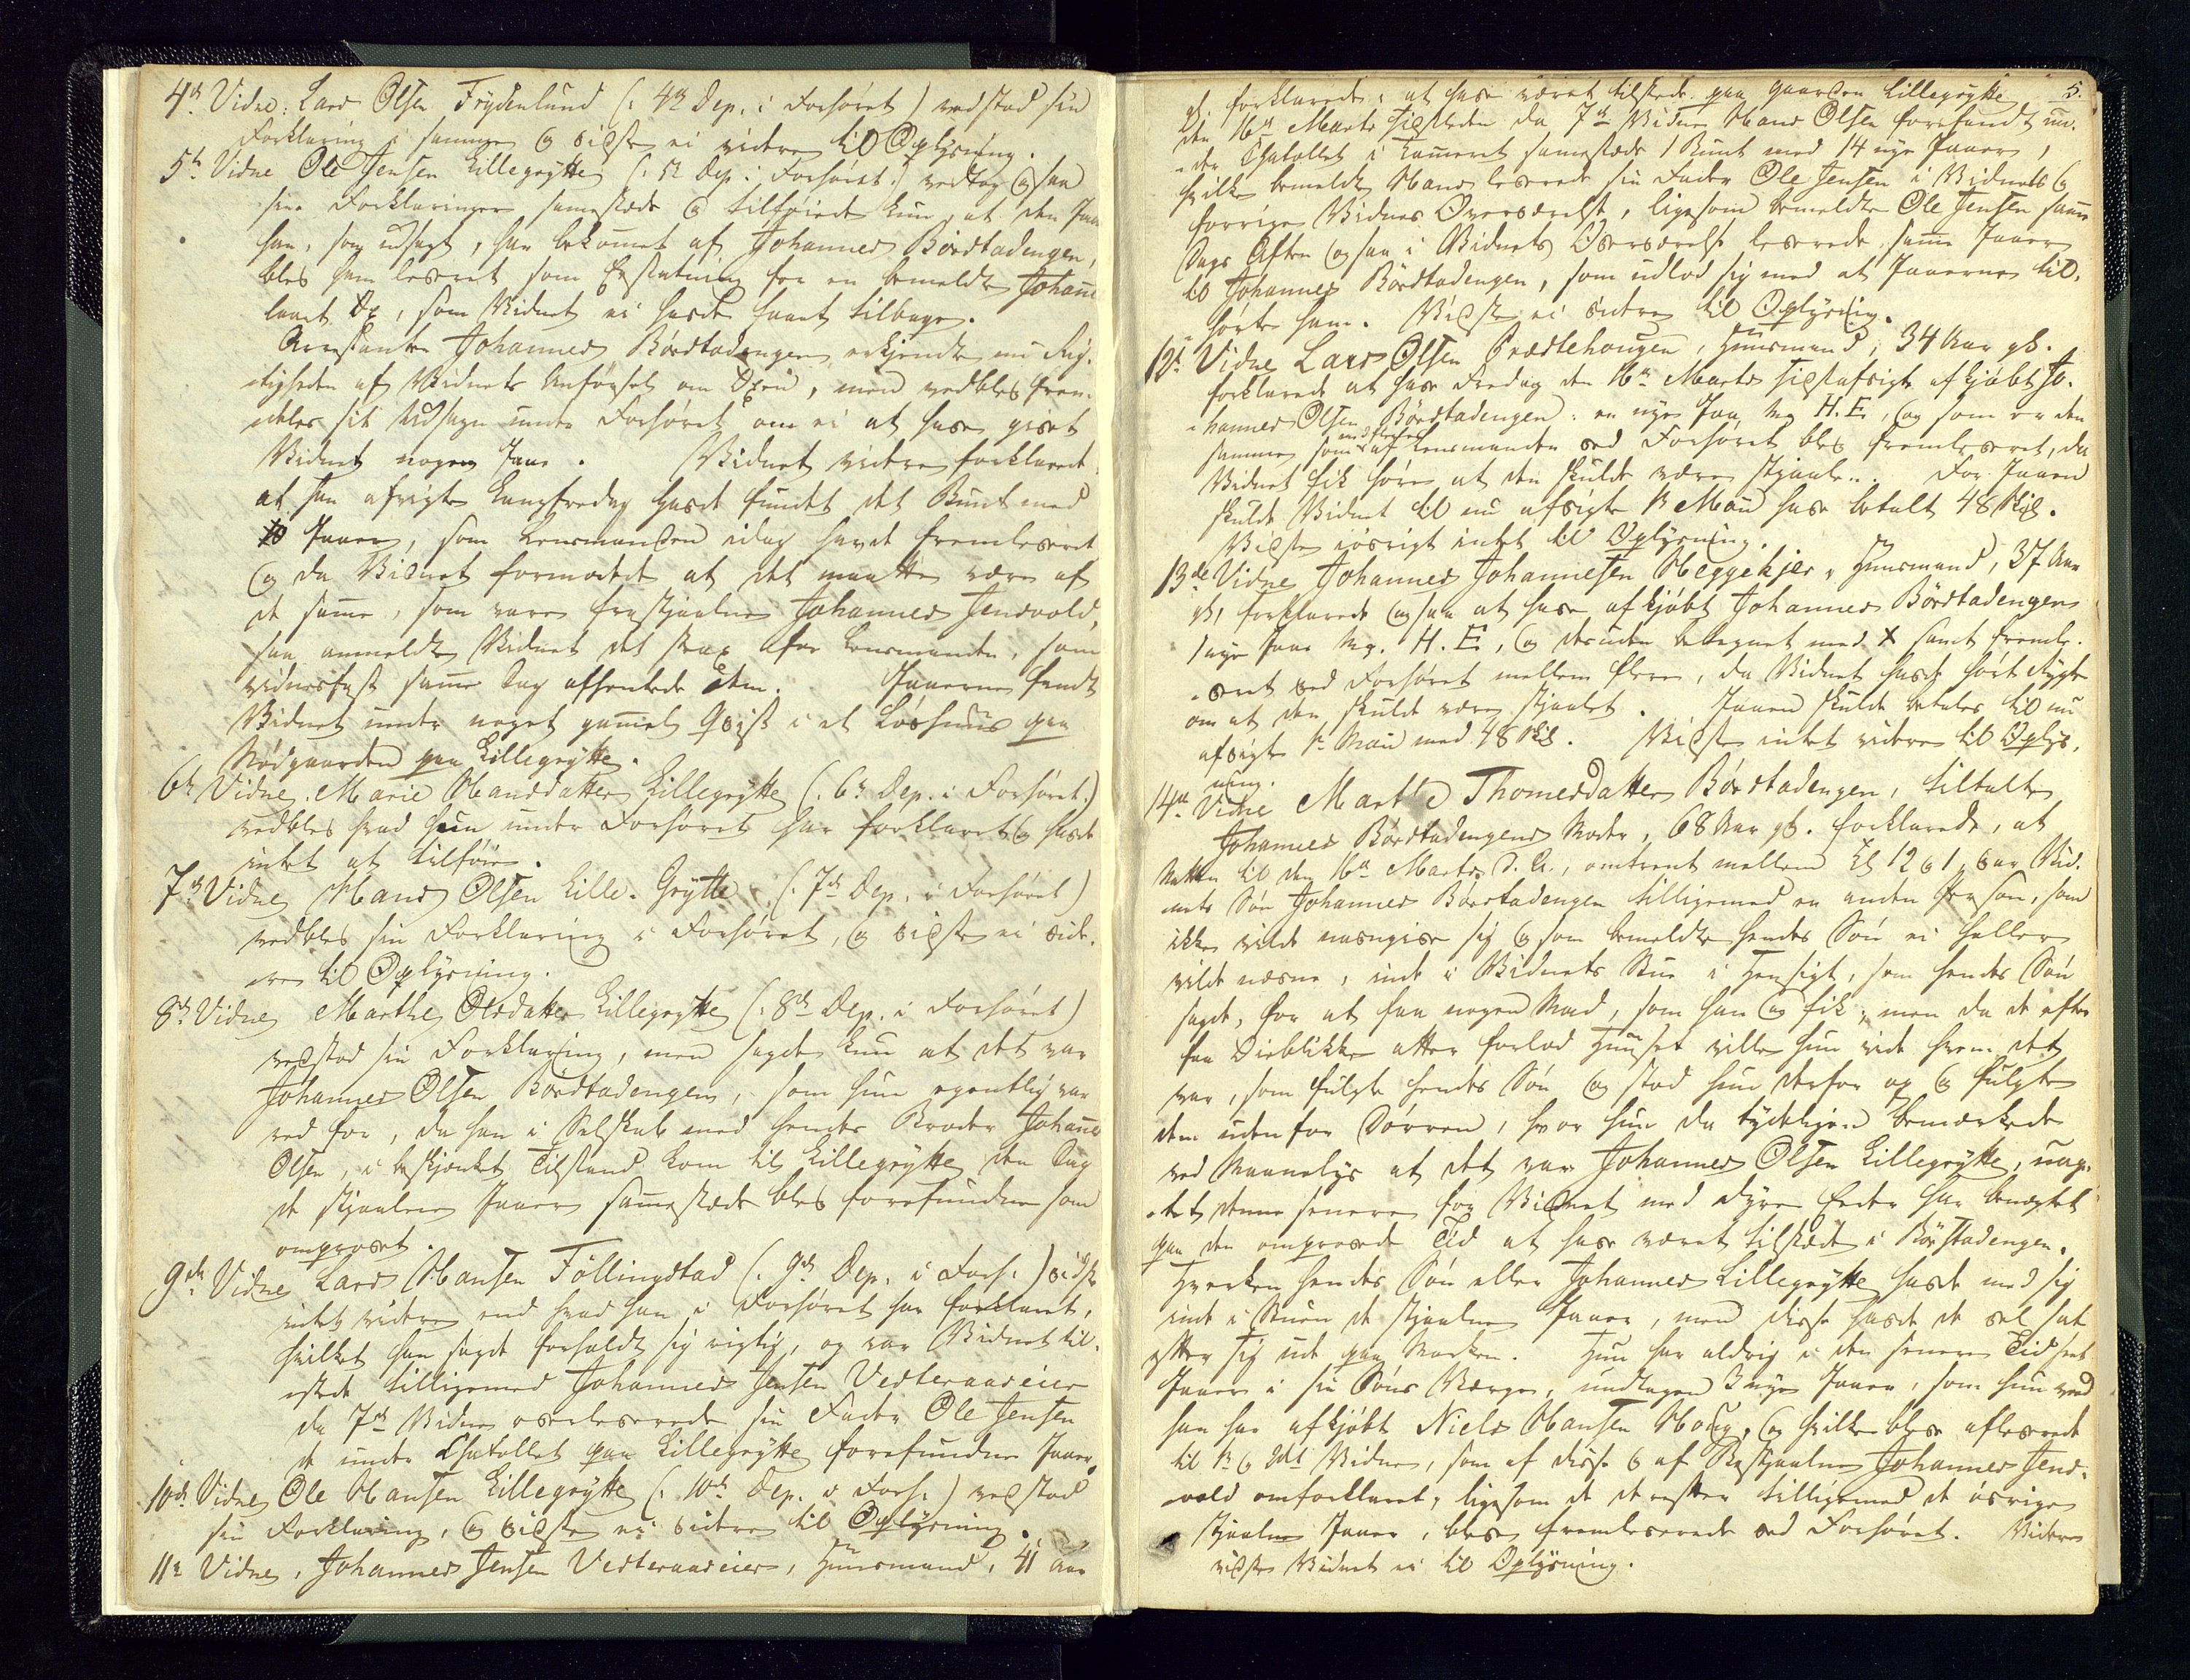 4de Vidne: Lars Olsen Frydenlund (: 4de Dep. i Forhöret) vedstod sin
Forklaring i samme og vidste ei videre til Oplysning.
5te Vidne Ole Jensen Lillegrytte (: 5te Dep. i Forhöret:) vedtog ogsaa
sine Forklaringer sammesteds og tilföiede kun, at den
han, som udsagt, har bekommet af Johannes Börstadengen,
blev ham leveret som Erstatning for en bemeldte Johannes
laant Öx, som Vidnet ei havde faaet tilbage.
Arrestanten Johannes Börstadengen erkjendte nu Rig-
tigheden af Vidnets Anförsel om Öxen, men vedblev frem-
deles sit Udsagn under Forhöret om ei at have givet
Vidnet nogen. Vidnet videre forklarede
at han afvigte Langfredag havde fundet det Bundt med
10, som Lensmanden idag havde fremleveret
og da Vidnet formodede at det maatte være af
de samme, som vare frastjaalne Johannes Jensvold,
saa anmeldte Vidnet det strax for Lensmanden, som
samme Dag afhentede dem. fandt
Vidnet under noget gammel Qvist i et Löshuus paa
Nödgaarden paa Lillegrytte.
6te Vidne. Marie Hansdatter Lillegrytte (: 6te Dep. i Forhöret:)
vedblev hvad hun under Forhöret har forklaret og havde
intet at tilföie.
7de Vidne Hans Olsen Lille-Grytte (: 7de Dep. i Forhöret)
vedblev sin Forklaring i Forhöret, og vidste ei vide-
re til Oplysning.
8de Vidne Marthe Olsdatter Lillegrytte (: 8de Dep. i Forhöret)
vedstod sin Forklaring, men sagde kun at det var
Johannes Olsen Börstadengen, som hun egentlig var
ved for, da han i Selskab med hendes Broder Johannes
Olsen, i beskjænket Tilstand kom til Lillegrytte den Dag
de stjaalne sammesteds blev forefundne som
omprovet.
9de Vidne Lars Hansen Föllingstad (: 9de Dep. i Forh:) vidste
intet videre end hvad han i Forhöret har forklaret,
hvilket han sagde forholdt sig rigtig, og var Vidnet til-
stede tilligemed Johannes Jensen Vesteraaseier
da 7de Vidne overleverede sin Fader Ole Jensen
de under Chatollet paa Lillegrytte forefundne
10de Vidne Ole Hansen Lillegrytte (: 10de Dep. i Forh:) vedstod
sin Forklaring, og vidste ei videre til Oplysning.
11te Vidne, Johannes Jensen Vesteraaseier, Huusmand, 41 Aar
5.
gl. forklarede: at have været tilstede paa Gaarden Lillegrytte
den 16de Marts sidstleden da 7de Vidne Hans Olsen forefandt un-
der Chatollet i Kammeret sammesteds 1 Bundt med 14 nye,
hvilke bemeldte Hans leverede sin Fader Ole Jensen i Vidnets og
forrige Vidnes Overværelse, ligesom bemeldte Ole Jensen samme
Dags Aften ogsaa i Vidnets Overværelse leverede samme
til Johannes Börstadengen, som udlod sig med at til-
hörte ham. Vidste ei videre til Oplysning.
12te Vidne Lars Olsen Prestehougen, Huusmand, 34 Aar gl.
forklarede at have Fredag den 16de Marts sidstafvigte afkjöbt Jo-
hannes Olsen Börstadengen: en nye Mg H.E, og som er den
samme som af Lensmanden ved Forhöret blev fremleveret, da
Vidnet fik höre at den skulde være stjaalen. For
skulde Vidnet til nu afvigte 1te Mai have betalt 48 Skil.
Vidste iövrigt intet til Oplysning.
13de Vidne Johannes Johannesen Heggekjer, Huusmand, 37 Aar
gl, forklarede ogsaa at have afkjöbt Johannes Börstadengen
1 nye Mg. H.E, og desuden betegnet med X samt fremle-
veret ved Forhöret mellem flere, da Vidnet havde hört Rygte
om at den skulde være stjaalet. skulde betales til nu
afvigte 1te Mai med 48 Skil. Vidste intet videre til Oplys-
ning.
14de Vidne Marthe Thomesdatter Börstadengen, tiltalte
Johannes Börstadengens Moder, 68 Aar gl. forklarede, at
Natten til den 16de Marts d. A., omtrent mellem Kl 12 og 1, var Vid-
nets Sön Johannes Börstadengen tilligemed en anden Person, som
ikke vilde navngive sig og som bemeldte hendes Sön ei heller
vilde nævne, inde i Vidnets Stue i Hensigt, som hendes Sön
sagde, for at faa nogen Mad, som han og fik; men da de efter
faa Öieblikke atter forlod Huuset ville hun vide hvem det
var, som fulgte hendes Sön og stod hun derfor op og fulgte
dem uden for Dörren, hvor hun da tydeligen bemærkede
ved Maanelys at det var Johannes Olsen Lillegrytte, uag-
tet denne senere for Vidnet med dyre Eeder har benægtet
paa den omprovede Tid at have været tilstæde i Börstadengen.
Hverken hendes Sön eller Johannes Lillegrytte havde med sig
inde i Stuen de stjaalne, men disse havde de vel sat
efter sig ude paa Marken. Hun har aldrig i den senere Tid seet
i sin Söns Værge, undtagen 3 nye, som hun veed
han har afkjöbt Niels Hansen Houg, og hvilke bleve afleverede
til 1te og 2det Vidne, som af disse og af Bestjaalne Johannes Jens-
vold omforklaret, ligesom de derefter tilligemed de övrige
stjaalne, bleve fremleverede ved Forhöret. Videre
vidste Vidnet ei til Oplysning.